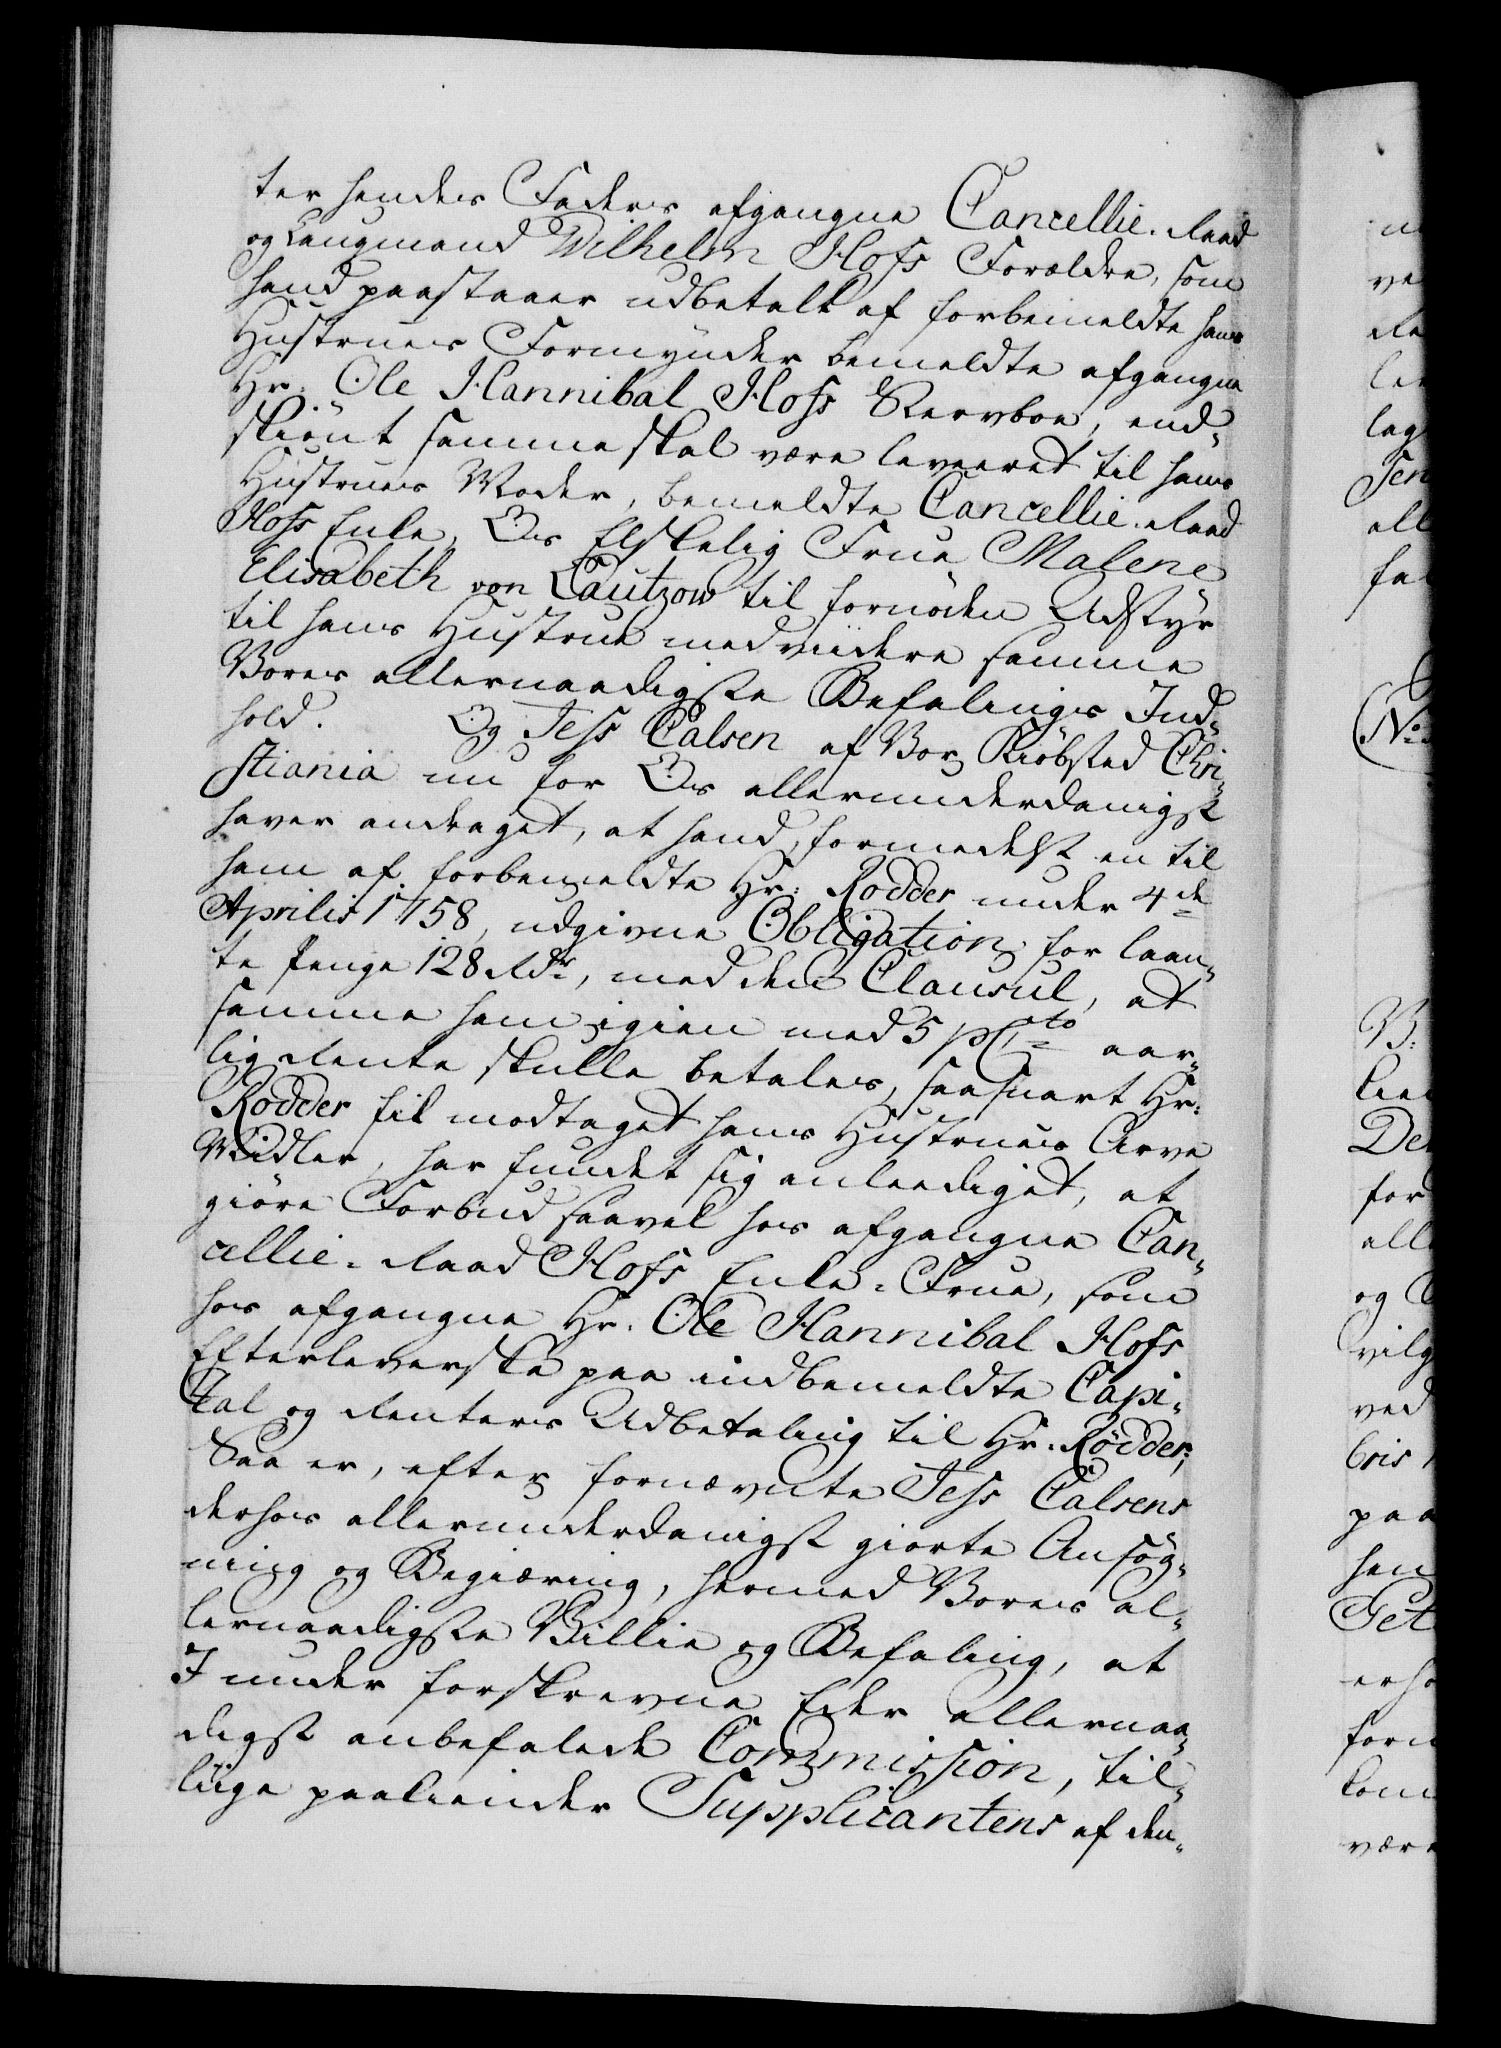 ter hendes Faders afgangne Cancellie-Raad
og Laugmand Wilhelm Hofs Forældre, som
hand paastaaer udbetalt af forbemeldte hans
Hustrues Formynder bemeldte afgangne
Hr: Ole Hannibal Hofs Stervboe, end-
skiönt samme skal være leveeret til hans
Hustrues Moder, bemeldte Cancellie-Raad
Hofs Enke, Os Elskelig Frue Malene
Elisabeth von Lautzow til fornöden Udstyr
til hans Hustrue med viidere samme
Vores allernaadigste Befalings Ind-
hold. Og Jess Calsen af Vor Kiöbsted Chri-
stiania nu for Os allerunderdanigst
haver andraget, at hand, formedelst en til
ham af forbemeldte Hr: Rodder under 4de
Aprilis 1758, udgivne Obligation for laan-
te Penge 128 Rdr, med den Clausul, at
samme ham igien med 5 pCto aar-
lig Rente skulle betales, saasnart Hr:
Rodder fik modtaget hans Hustrues Arve
Midler, har fundet sig anleediget, at
giöre Forbud saavel hos afgangne Can-
cellie-Raad Hofs Enke-Frue, som
hos afgangne Hr. Ole Hannibal Hofs
Efterleverske paa indbemeldte Capi-
tal og Renters Udbetaling til Hr. Rödder;
Saa er, efter fornævnte Jess Calsens
derhos allerunderdanigst giorte Ansög-
ning og Begiæring, hermed Vores al-
lernaadigste Villie og Befaling, at
I under forskrevne Eder allernaa-
digst anbefalede Commission, til-
liige paakiender Supplicantens af den-